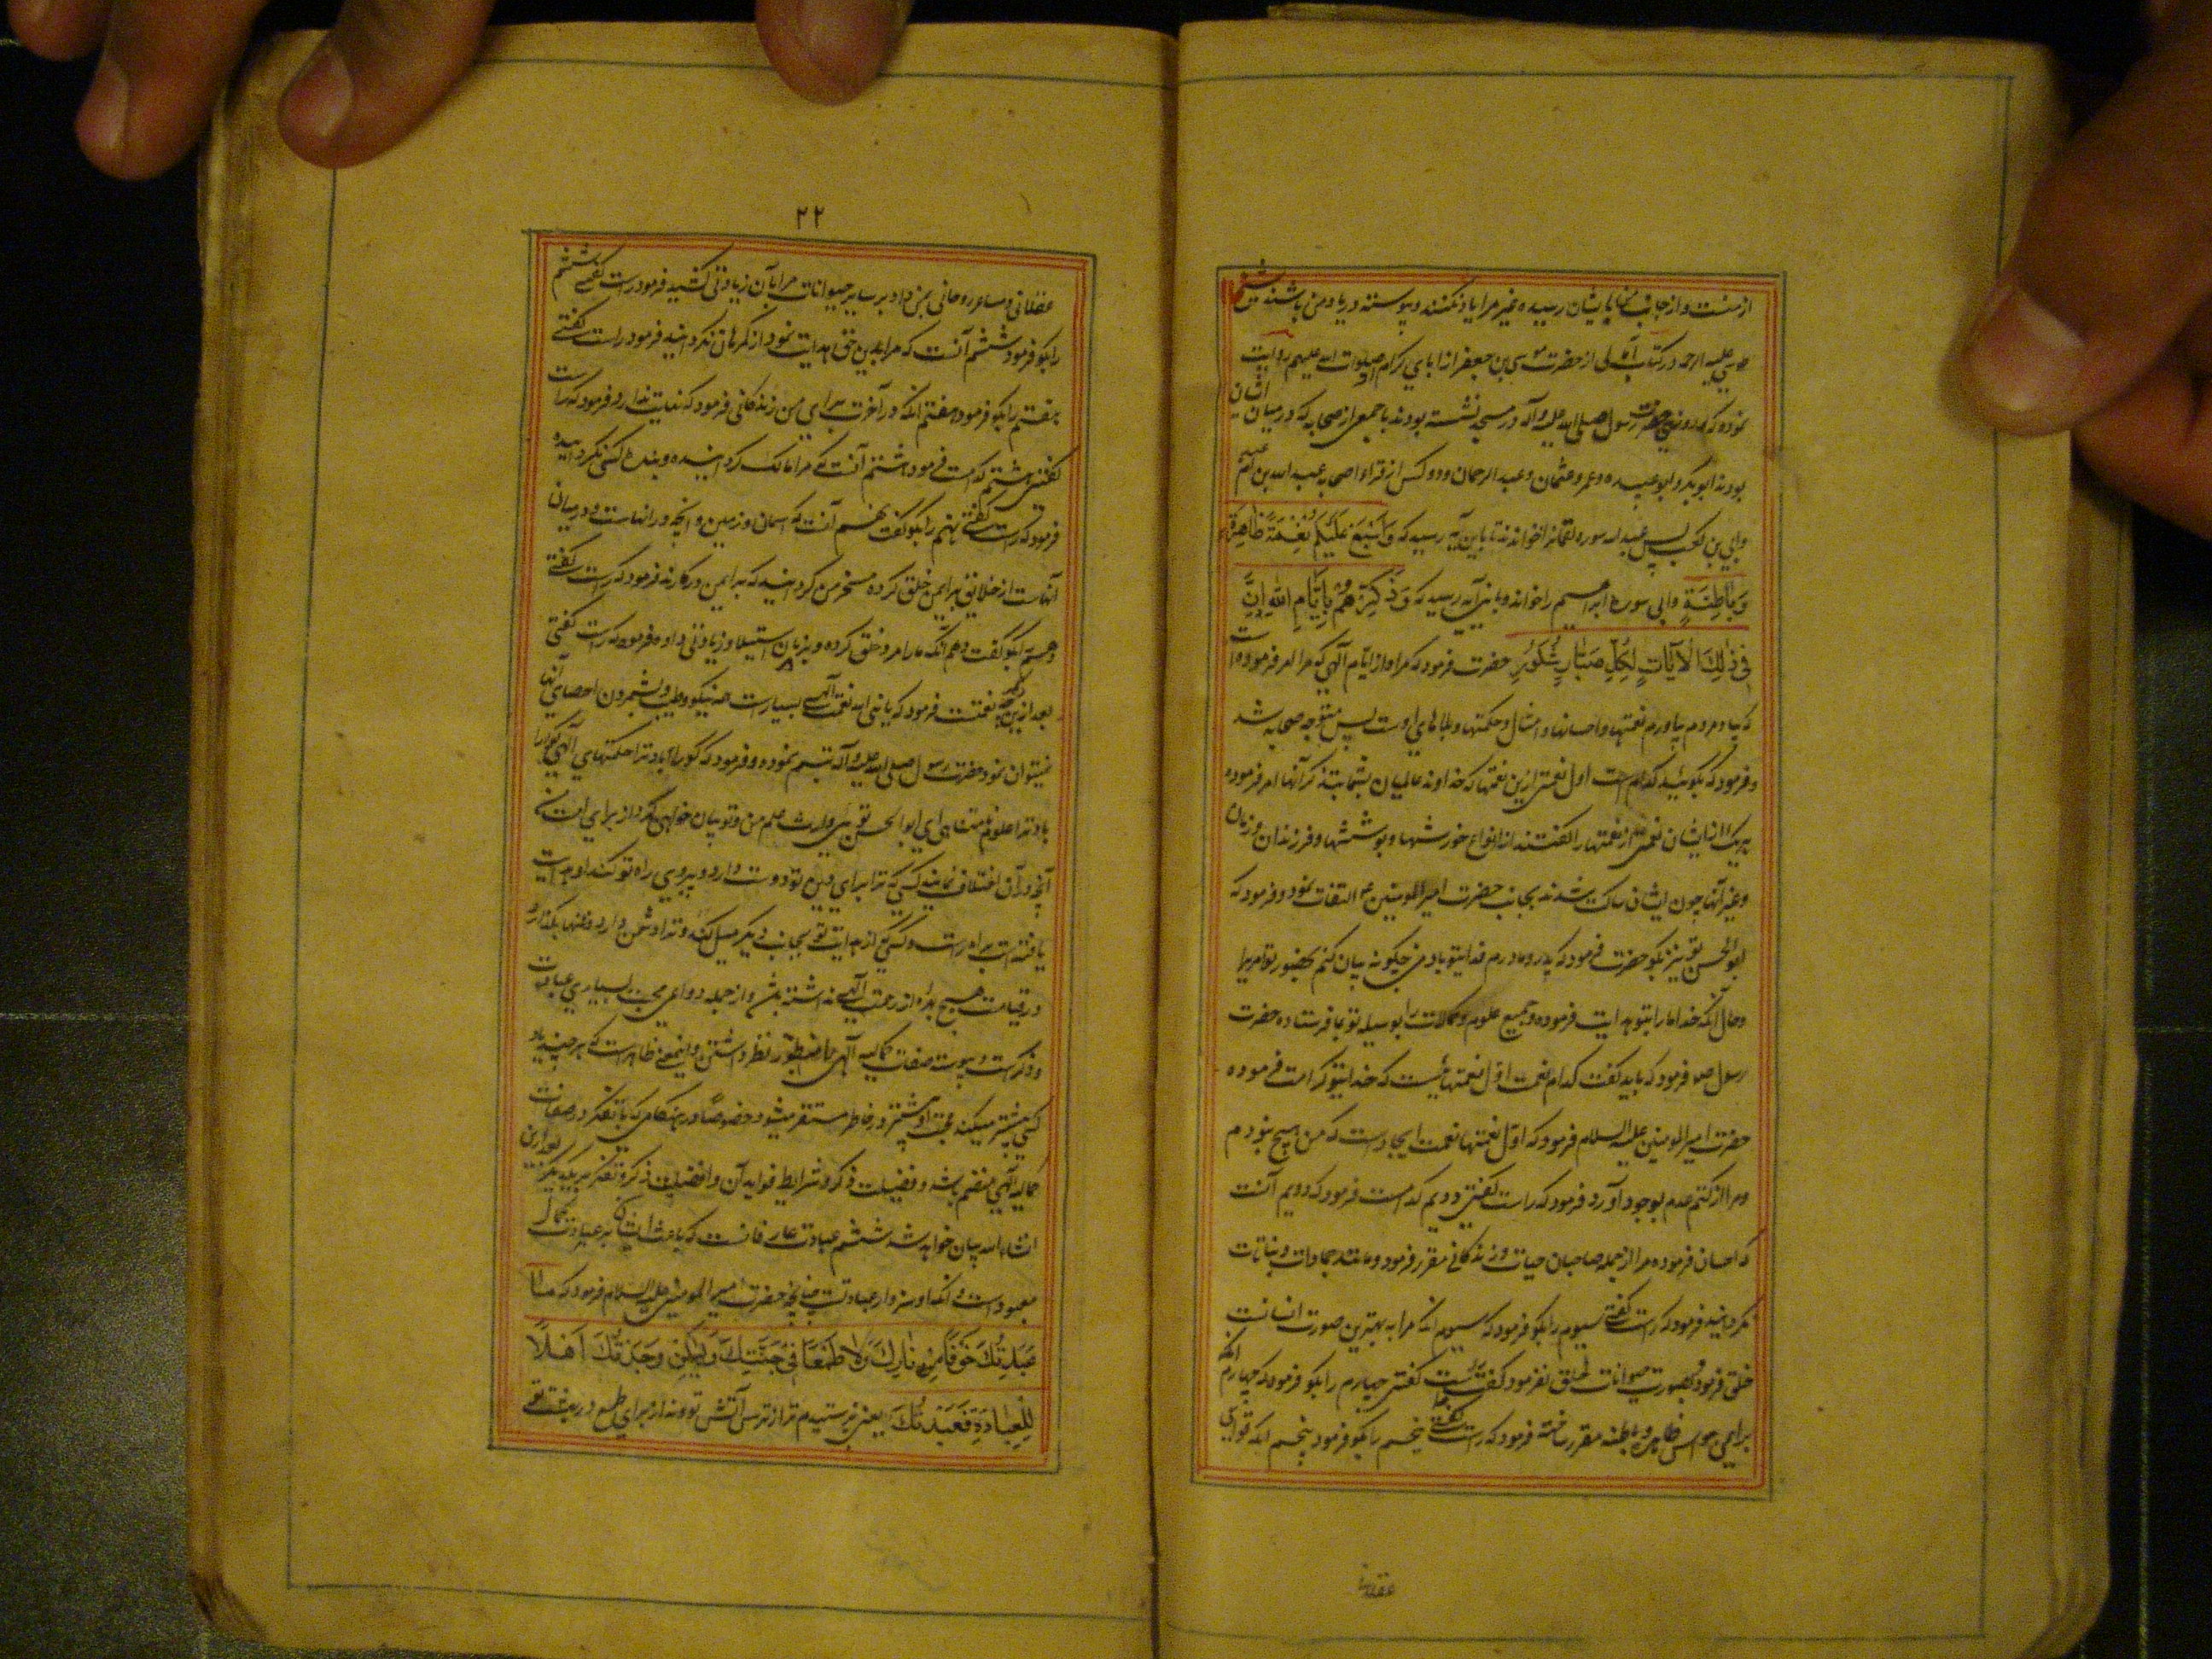 ازمنست و از جانب من بایشان رسیده غیر مرا یاد نکنند و پیوسته در یاد من باشند شیخ
طوسی علیه الرحمه در کتاب آمالی از حضرت موسی بن جعفر از ابای کرام او صلوات الله علیهم روایت
نموده که روزی حضرت رسول صلی الله علیه و آله در مسجد نشسته بودند با جمعی از صحابه که در میان ایشان
بودند ابوبکر و ابوعبیده و عمر و عثمان و عبد الرحمان و دو کس از قراء اصحاب عبد الله بن ام عبد
و ابی بن کعب پس عبد الله سوره لقمانرا خواندند تا باین آیه رسید که وَاَسْبَغَ عَلَیْکُمْ نِعْمَةً ظَاهِرَةً
وَبَاطِنَةً و ابی سوره ابراهیم را خواند و باین آیه رسید که وَذَکِّرْهُمْ بِاَیَّامِ اللهِ اِنَّ
فِی ذٰلِکَ لَآیَاتٍ لِکُلِّ صَبَّارٍ شَکُورٍ حضرت فرمود که مراد از ایام آلهی که مرا امر فرموده است
که بیاد مردم بیاورم نعمتها و احسانها و امثال و حکمتها و بلاهای اوست پس متوجه صحابه شد
و فرمود که بگوئید کدام است اول نعمتی ازین نعمتها که خداوند عالمیان شما بتذکر آنها امر فرموده
هر یک از ایشان نعمتی از نعمتها را گفتند از انواع خورشها و پوششها و فرزندان و زنان
و غیر آنها چون ایشان ساکت شدند بجانب حضرت امیر المومنین ع التفات نمود و فرمود که
ابو الحسن تو نیز بگو حضرت فرمود که پدر و مادرم فدای تو باد من چگونه بیان کنم بحضور تو امریرا
و حال آنکه خدا ما را بتو هدایت فرموده و جمیع علوم و کمالات را بوسیله تو بما فرستاده حضرت
رسول ص فرمود که باید گفت کدام نعمت اول نعمتهائیست که خدا بتو کرامت فرموده
حضرت امیر المومنین علیه السلام فرمود که اول نعمتها نعمت ایجادست که من هیچ نبودم
و مرا از کتم عدم بوجود آورد فرمود که راست گفتی دویم کدامست فرمود که دویم آنست
که احسان فرموده مرا از جمله صاحبان حیات و زندگانی مقرر فرمود و مانند جمادات و نباتات
نگردانید فرمود که راست گفتی سیوم را بگو فرمود که سیوم آنکه مرا به بهترین صورت انسانست
خلق فرمود و بصورت حیوانات خلق نفرمود گفت راست گفتی چهارم را بگو فرمود که چهارم آنکه
برای من حواس ظاهره و باطنه مقرر ساخته فرمود که راست گفتی پنجم را بگو فرمود پنجم آنکه قوای
عقلانی
۲۲
عقلانی و مشاعر روحانی بمن داد و بر سایر حیوانات مرا بآن زیادتی بخشید فرمود راست گفتی ششم
را بگو فرمود ششم آنست که مرا بدین حق هدایت نمود از گمرهان نگردانید فرمود راست گفتی
هفتم را بگو فرمود هفتم آنکه در آخرت برای من زندگانی فرمود که نهایت ندارد فرمود که راست
گفتی هشتم کدامست فرمود هشتم آنست که مرا مالک گردانیده و بنده کسی نگردانیده
فرمود که راست گفتی نهم را بگو گفت نهم آنست که آسمان و زمین و آنچه در آنهاست و در میان
آنهاست از خلایق برای من خلق کرده و مسخر من گردانید که برای من در کارند فرمود که راست گفتی
دهم را بگو گفت دهم آنکه ما را مرد خلق کرده و بر زنان استیلا و زیادتی داده فرمود که راست گفتی
بعد ازین دیگر چه نعمتست فرمود که یا نبی الله نعمت آلهی بسیارست همه نیکو و طیب و بشمردن احصای آنها
نمیتوان نمود حضرت رسول صلی الله علیه و آله تبسم نموده و فرمود که گوارا باد ترا حکمتهای آلهی گوارا
باد ترا علوم نامتناهی ای ابو الحسن توئی وارث علم من و تو بیان خواهی کرد از برای امت من
آنچه در آن اختلاف نمایند کسی که ترا برای دین تو دوست دارد و پیروی راه تو کند او هدایت
یافته است براه راست و کسی که از هدایت تو بجانب دیگر میل کند و ترا دشمن دارد و تنها بگذارد
در قیامت هیچ بهره از رحمت آلهی نداشته باشد و از جمله دواعی محبت بسیاری عبادت
و ذکرست و پیوسته صفات کمالیه آلهی را منظور نظر داشتن و اینمعنی ظاهرست که هر چند یاد
کسی بیشتر میکند محبت او بیشتر در خاطر مستقر میشود خصوصا در هنگامی که با تفکر در صفات
کمالیه آلهی منضم باشد و فضیلت ذکر و شرایط و فواید آن و افضلیت ذکر و تفکر بر یکدیگر بعد ازین
انشاء الله بیان خواهد شد ششم عبادت عارفانست که باعث ایشان بر عبادت کمال
معبود است و آنکه او سزاوار عبادتست چنانچه حضرت امیر المومنین علیه السلام فرمود که مَا
عَبَدْتُکَ خَوْفًا مِنْ نَارِکَ وَلَا طَمَعًا فِی جَنَّتِکَ وَلٰکِنْ وَجَدْتُکَ اَهْلًا
لِلْعِبَادَةِ فَعَبَدْتُکَ یعنی نپرستیدم ترا از ترس آتش تو و نه از برای طمع در بهشت تو